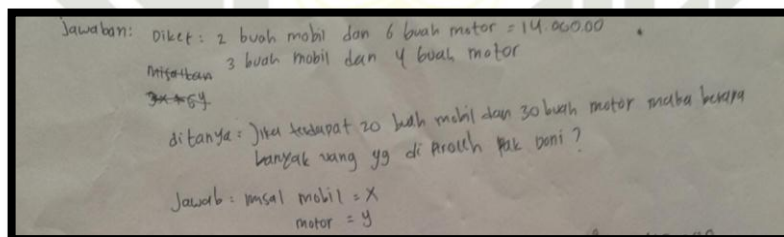 Jawaban: Diket: 2 buah mobil dan 6 buah motor = 14.000.00
misalkan 3 buah mobil dan 4 buah motor
3x + 5y
ditanya: Jika terdapat 20 buah mobil dan 30 buah motor maka berapa
banyak uang yg di Proleh Pak Doni?
Jawab: misal mobil = x
motor = y